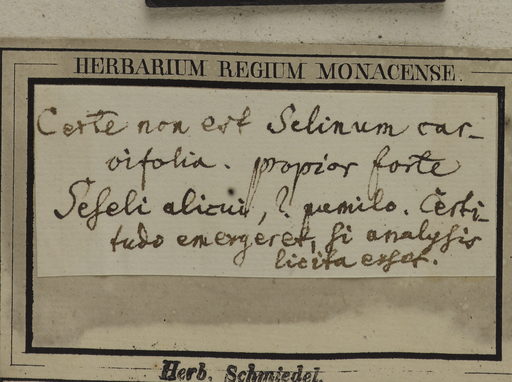 HERBARIUM REGIUM MONACENSE.
Certe non est Selinum car-
vifolia. propior forte
Seseli alicui, ? pumilo. Certi-
tudo emergeret, si analysis
licita esset.
Herb. Schmiedel.